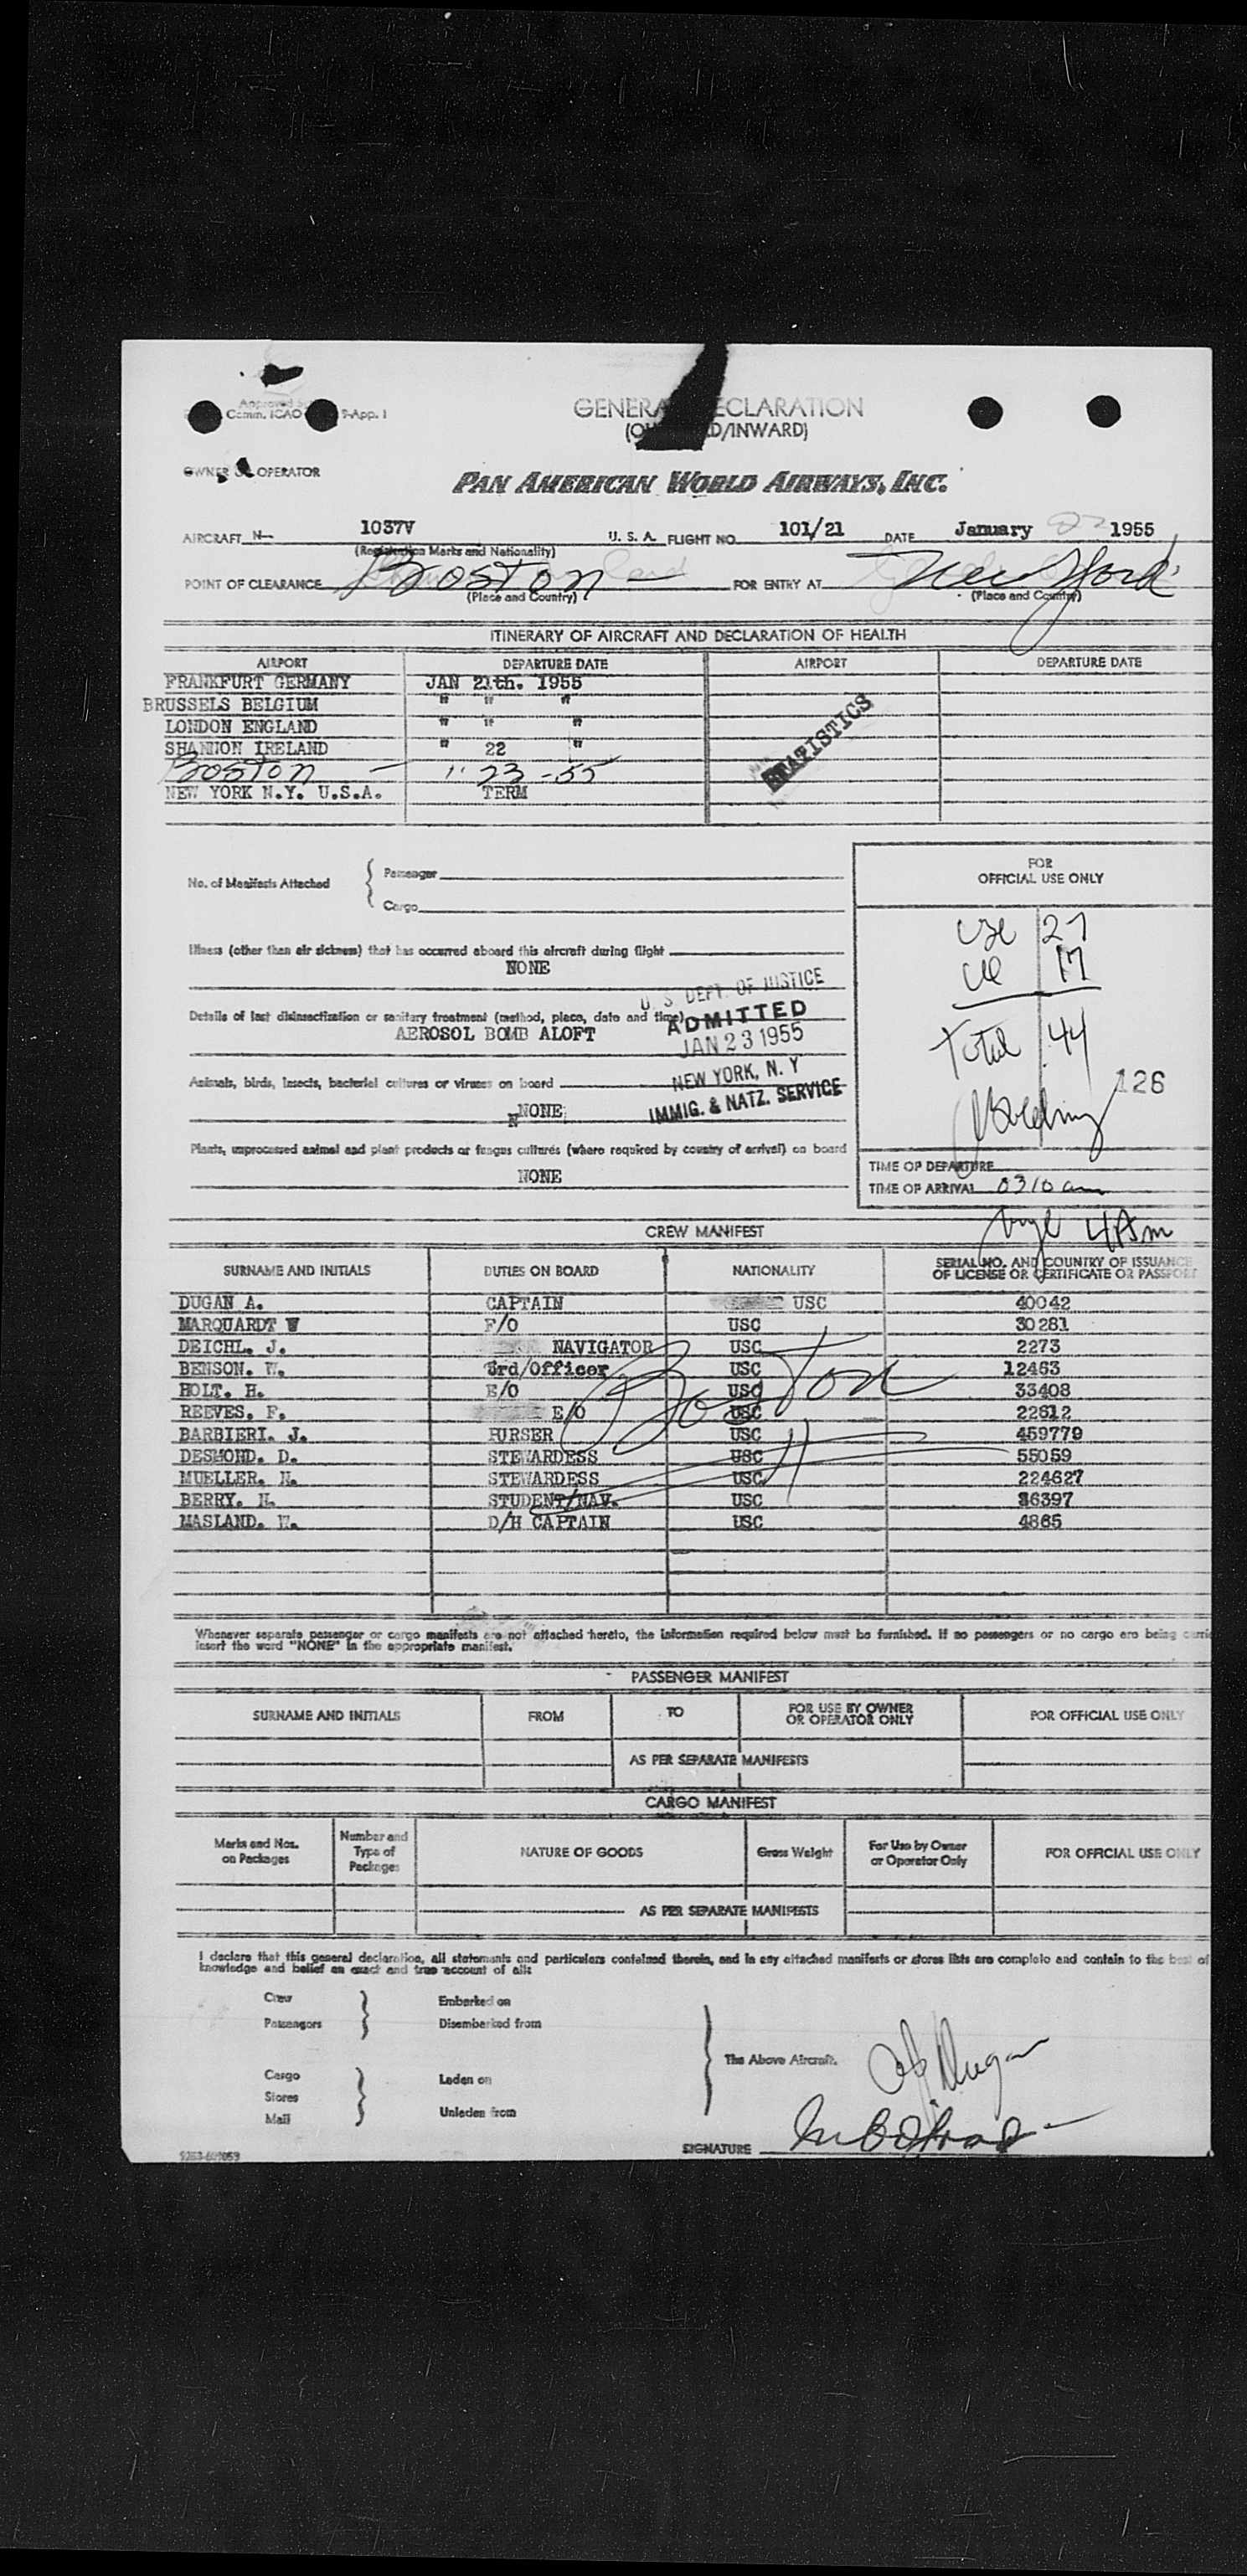 Comm. ICAO 9-App. 1
GENERAL DECLARATION
(OUTWARD/INWARD)
OWNER OR OPERATOR
PAN AMERICAN WORLD AIRWAYS, INC.
AIRCRAFT N- 1037V U. S. A. FLIGHT NO. 101/21 DATE January 1955
(Registration Marks and Nationality)
POINT OF CLEARANCE Boston FOR ENTRY AT New York
(Place and Country) (Place and Country)
ITINERARY OF AIRCRAFT AND DECLARATION OF HEALTH
AIRPORT DEPARTURE DATE AIRPORT DEPARTURE DATE
FRANKFURT GERMANY JAN 21th. 1955
BRUSSELS BELGIUM " " "
LONDON ENGLAND " " "
SHANNON IRELAND " 22 "
Boston — " 23 -55
NEW YORK N.Y. U.S.A. TERM
STATISTICS
No. of Manifests Attached { Passenger
Cargo
FOR
OFFICIAL USE ONLY
27
17
Total 44
126
Illness (other than air sickness) that has occurred aboard this aircraft during flight
NONE
Details of last disinsectization or sanitary treatment (method, place, date and time)
AEROSOL BOMB ALOFT
U. S. DEPT. OF JUSTICE
ADMITTED
JAN 23 1955
NEW YORK, N. Y
IMMIG. & NATZ. SERVICE
Animals, birds, insects, bacterial cultures or viruses on board
NONE
Plants, unprocessed animal and plant products or fungus cultures (where required by country of arrival) on board
NONE
TIME OF DEPARTURE
TIME OF ARRIVAL 0310 am
4 Am
CREW MANIFEST
SURNAME AND INITIALS DUTIES ON BOARD NATIONALITY SERIAL NO. AND COUNTRY OF ISSUANCE
OF LICENSE OR CERTIFICATE OR PASSPORT
DUGAN A. CAPTAIN USC 40042
MARQUARDT W F/O USC 30281
DEICHL. J. NAVIGATOR USC 2273
BENSON. W. 3rd/Officer USC 12463
HOLT. H. E/O USC 33408
REEVES. F. E/O USC 22612
BARBIERI. J. PURSER USC 459779
DESMOND. D. STEWARDESS USC 55059
MUELLER. H. STEWARDESS USC 224627
BERRY. H. STUDENT/NAV. USC 36397
MASLAND. W. D/H CAPTAIN USC 4865
Boston
11
Whenever separate passenger or cargo manifests are not attached hereto, the information required below must be furnished. If no passengers or no cargo are being
insert the word "NONE" in the appropriate manifest.
PASSENGER MANIFEST
SURNAME AND INITIALS FROM TO FOR USE BY OWNER
OR OPERATOR ONLY FOR OFFICIAL USE ONLY
AS PER SEPARATE MANIFESTS
CARGO MANIFEST
Marks and Nos.
on Packages Number and
Type of
Packages NATURE OF GOODS Gross Weight For Use by Owner
or Operator Only FOR OFFICIAL USE ONLY
AS PER SEPARATE MANIFESTS
I declare that this general declaration, all statements and particulars contained therein, and in any attached manifests or stores lists are complete and contain to the best of
knowledge and belief an exact and true account of all:
Crew
Passengers
Embarked on
Disembarked from
Cargo
Stores
Mail
Laden on
Unladen from
The Above Aircraft.
Dugan
SIGNATURE